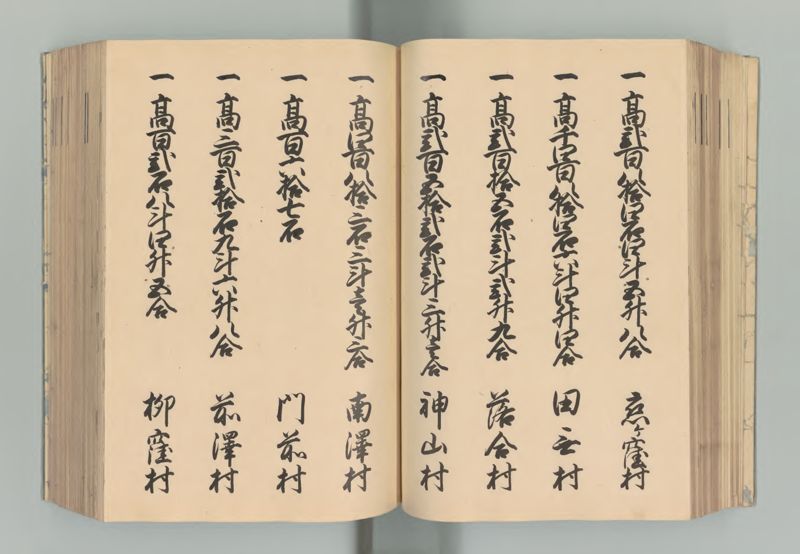 一 高弐百八拾四石四斗五升八合 恋ヶ窪村
一 高千四百八拾四石六斗四升四合 田無村
一 高弐百拾五石弐斗弐升九合 落合村
一 高弐百五拾弐石弐斗三升壱合 神山村
一 高四百八拾三石三斗壱升二合 南澤村
一 高百六拾七石 門前村
一 高三百弐拾石九斗六升八合 前澤村
一 高百弐石八斗四升五合 柳窪村